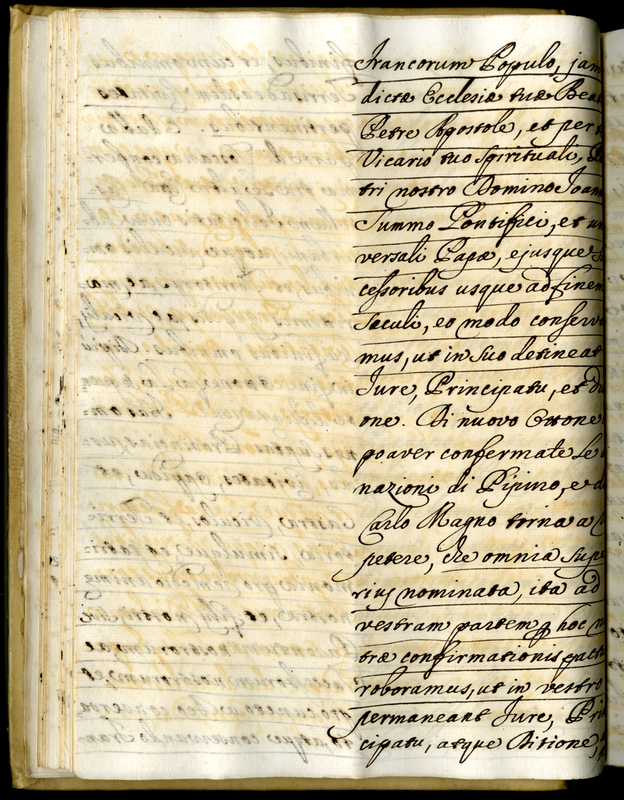 Francorum Populo, jam
dictæ Ecclesiæ tuæ Bea
Petre Apostole, et per t
Vicario tuo spirituali, P
tri nostro Domino Joan
Summo Pontifici, et un
versali Papæ, ejusque s
cessoribus usque ad finem
sæculi, eo modo conserv
mus, ut in suo detineat
Jure, Principatu, et di
one. Di nuovo Ottone
po aver confermate le
nazioni di Pipino, e d
Carlo Magno torna a
petere, che omnia supe
rius nominata, ita ad
vestram partem p hoc n
træ confirmationis pact
roboramus, ut in vestro
permaneant Jure, Prin
cipatu, atque Ditione,